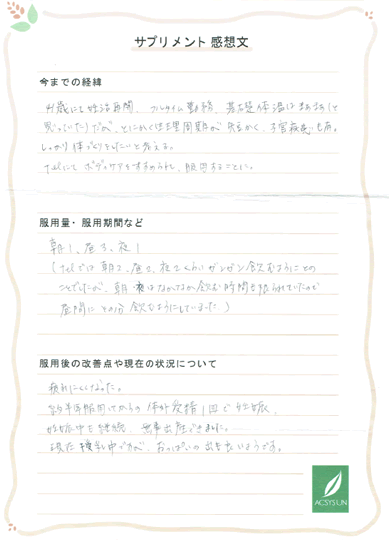 サプリメント 感想文
今までの経緯
41歳にて妊活再開、フルタイム勤務、基礎体温はまあまあ(と
思っていた)だが、とにかく生理周期が短かく、子宮後屈も有。
しっかり体づくりをしたいと考える。
telにて ボディケアをすすめられ、服用することに。
服用量・服用期間など
朝1、昼3、夜1
(telでは 朝2、昼2、夜2くらい ガンガン飲むようにとの
ことでしたが、朝・夜はなかなか飲む時間を限られていたので
昼間に その分 飲むようにしていました)
服用後の改善点や現在の状況について
疲れにくくなった。
約半年服用してからの 体外受精1回で妊娠、
妊娠中も継続、無事出産できました。
現在 授乳中ですが、おっぱいの出も良いようです。
ACSYSUN